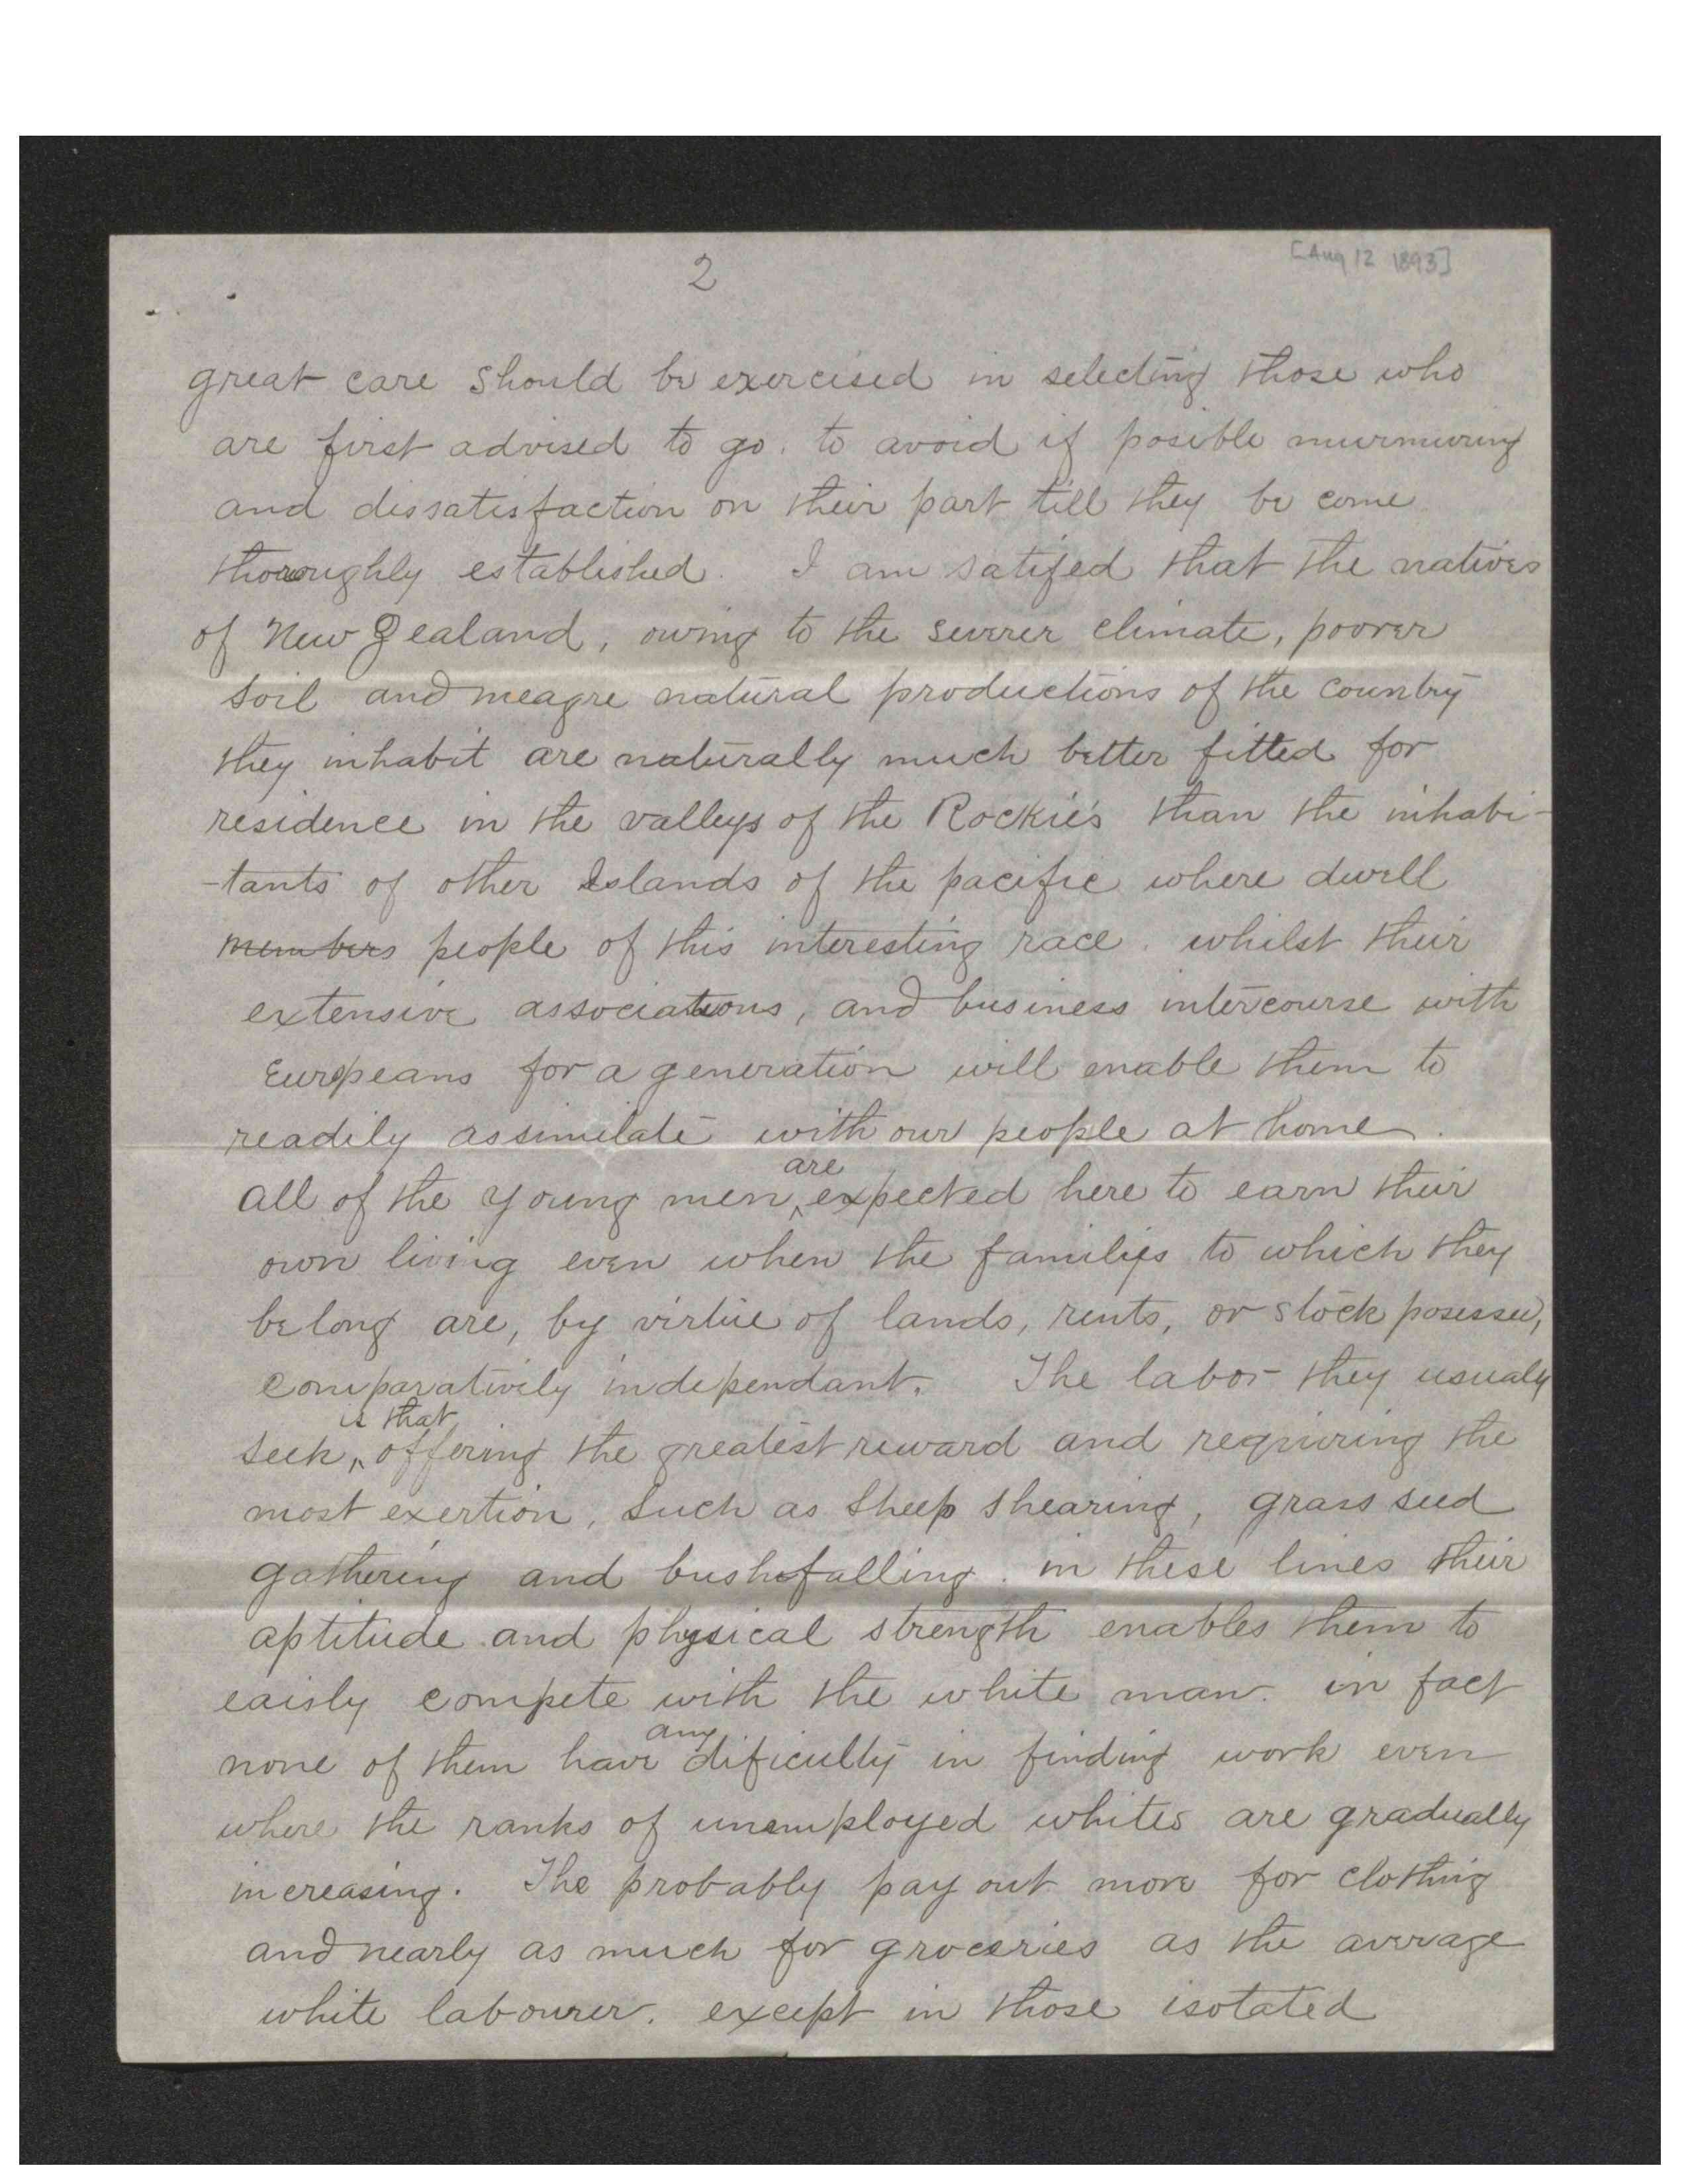 2
[Aug 12 1893]
great care should be exercised in selecting those who
are first advised to go. to avoid if posible murmuring
and dissatisfaction on their part till they be come
thoroughly established. I am satifed that the natives
of New Zealand, owing to the severer climate, poorer
soil and meagre natural productions of the country
they inhabit are naturally much better fitted for
residence in the valleys of the Rockies than the inhabi-
-tants of other Islands of the pacific where dwell
members people of this interesting race. whilst their
extensive associations, and business intercourse with
Europeans for a generation will enable them to
readily assimilate with our people at home.
all of the young men ^are expected here to earn their
own living even when the families to which they
belong are, by virtue of lands, rents, or stock posessed,
comparatively independant. The labor they usualy
seek, ^is that offering the greatest reward and requiring the
most exertion, such as sheep shearing, grass seed
gathering and bushfalling. in these lines their
aptitude and physical strength enables them to
eaisly compete with the white man. in fact
none of them have any dificulty in finding work even
where the ranks of unemployed whites are gradually
increasing. The probably pay out more for clothing
and nearly as much for groceries as the average
white labourer. except in those isotated